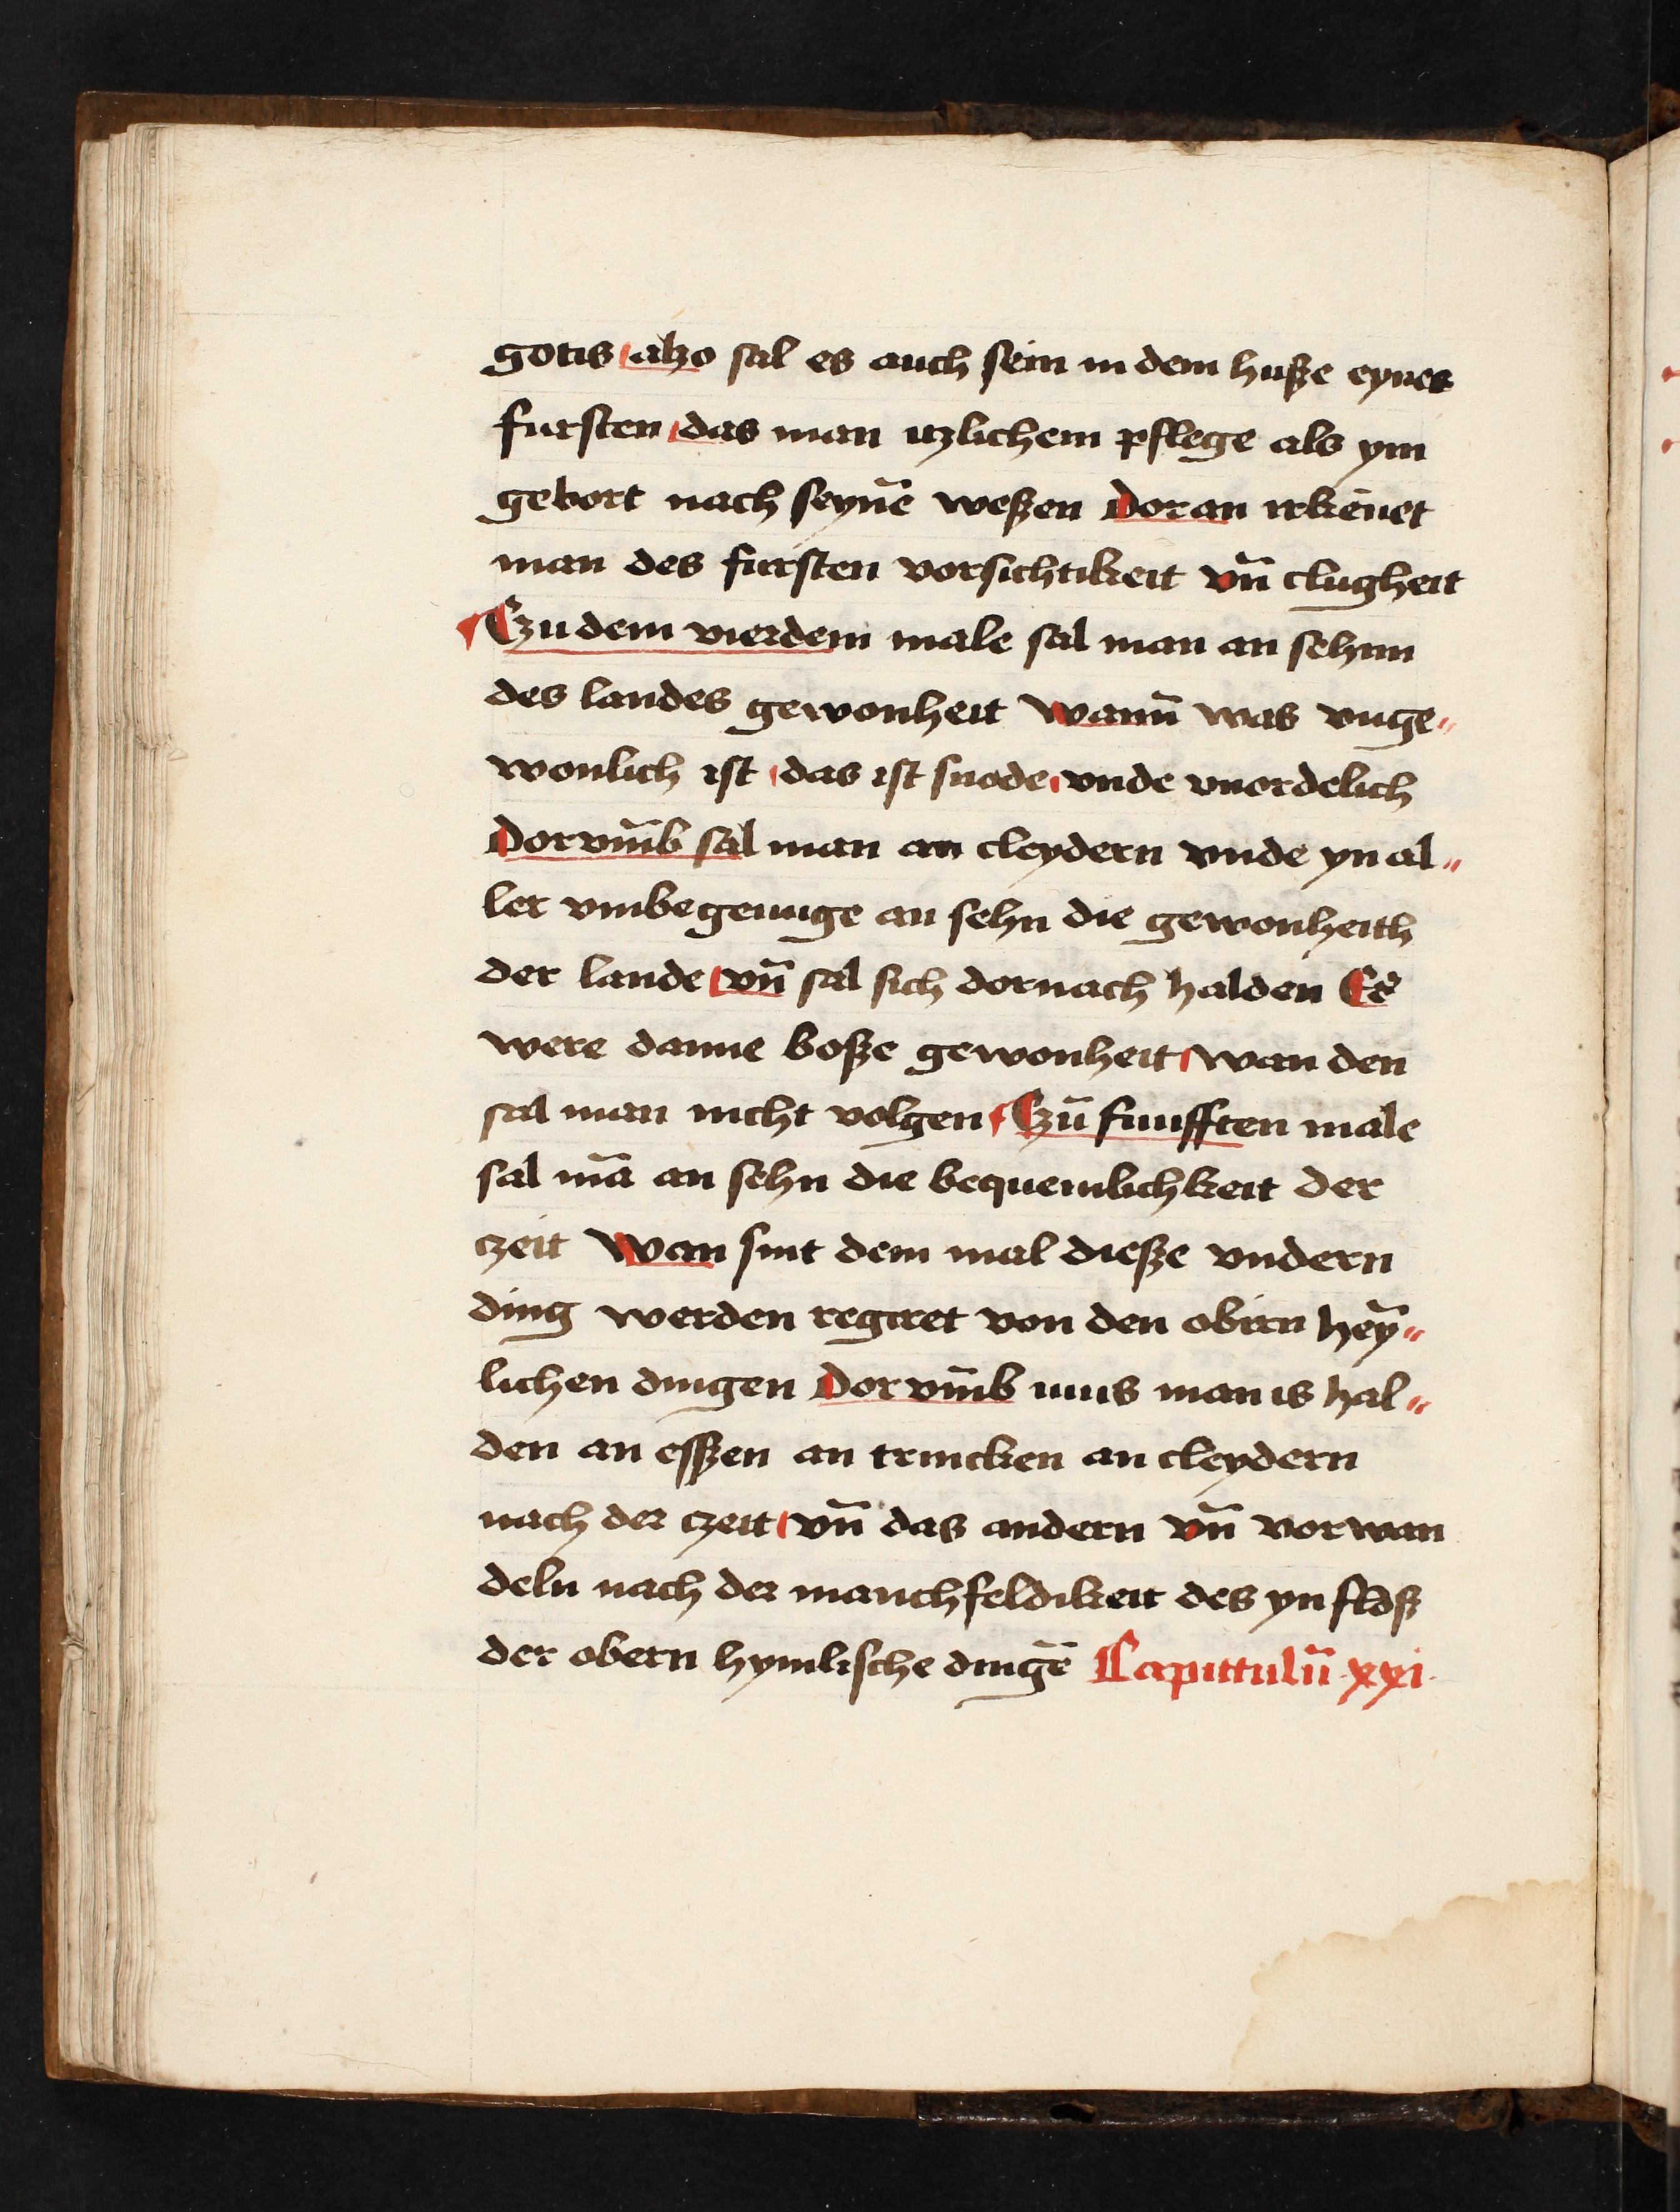 gotis alzo sal es auch sein in dem husze eynes
fursten das man itzlichem pflege als ym
gebort nach seynē weszen Doran irkēnet
man des fursten vorsichtikeit vn̄ clugheit
Czu dem vierdem male sal man an sehnn
des landes gewonheit Wann̄ was unge„
wonlich ist das ist snode unde unordelich
Dorvm̄b sal man an cleydern unde yn al„
ler umbegenuge an sehn die gewonheith
der lande vn̄ sal sich dornach halden Es
were danne bosze gewonheit wan den
sal man nicht volgen Czū funfften male
sal mā an sehn die bequemlichkeit der
czeit Wan sint dem mal diesze undern
ding werden regiret von den obirn hey̅„
lichen dingen Dorvm̄b mus man is hal„
den an esszen an trincken an cleydern
nach der czeit vn̄ das andern vn̄ vorwan
deln nach der manchfeldikeit des yn flosz
der obern hymlische dingē Capittulū .xxi.